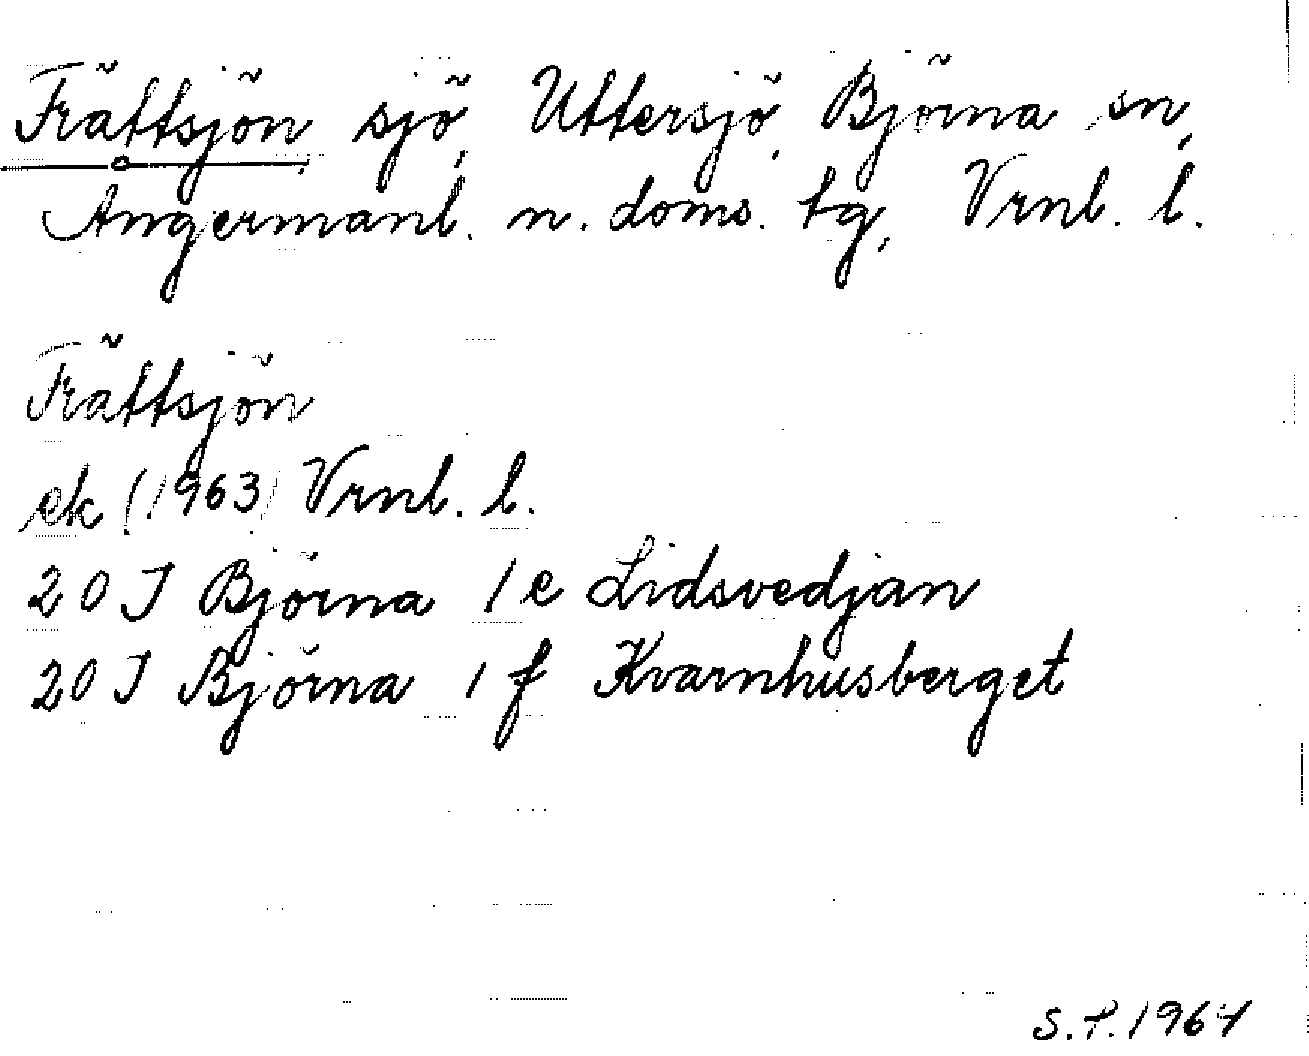 Frättsjön sjö, Uttersjö, Björna sn,
Ångermanl. n. doms. tg, Vrnl. l.
Frättsjön
ek (1963) Vrnl. l.
20 J Björna 1 e Lidsvedjan
20 J Björna 1 f Kvarnhusberget
S.P. 1964